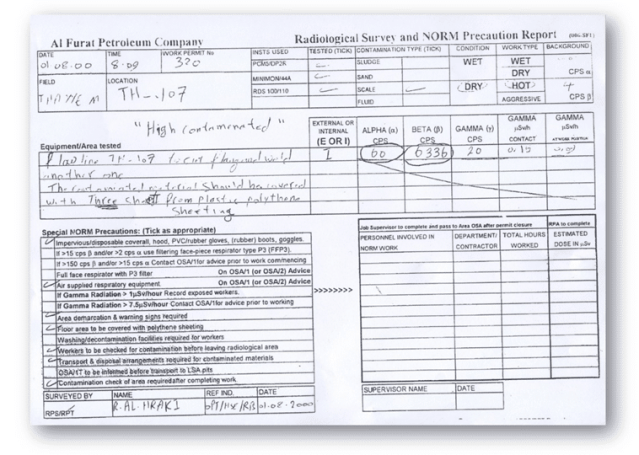 Al Furat Petroleum Company Radiological Survey and NORM Precaution Report
DATE TIME WORK PERMIT No INSTS USED TESTED (TICK) CONTAMINATION TYPE (TICK) CONDITION WORK TYPE BACKGROUND
01-08-00 8-00 320 PCM5/DP2R SLUDGE WET WET CPS α
MINIMON/44A SAND DRY
FIELD LOCATION RDS 100/110 SCALE DRY HOT 4 CPS β
TH-107 FLUID AGGRESSIVE
"High contaminated"
Equipment/Area tested EXTERNAL OR INTERNAL (E OR I) ALPHA (α) CPS BETA (β) CPS GAMMA (γ) CPS GAMMA µSv/h CONTACT GAMMA µSv/h
Flow line TH-107 I 60 6336 20
another one
The contaminated material should be covered
with Three sheet from plastic polythene
sheeting
Special NORM Precautions: (Tick as appropriate)
Impervious/disposable coverall, hood, PVC/rubber gloves, (rubber) boots, goggles.
If >15 cps β and/or >2 cps α use filtering face-piece respirator type P3 (FFP3).
If >150 cps β and/or >15 cps α Contact OSA/1for advice prior to work commencing
Full face respirator with P3 filter On OSA/1 (or OSA/2) Advice
Air supplied respiratory equipment On OSA/1 (or OSA/2) Advice
If Gamma Radiation > 1µSv/hour Record exposed workers.
If Gamma Radiation > 7.5µSv/hour Contact OSA/1for advice prior to working
Area demarcation & warning signs required
Floor area to be covered with polythene sheeting
Washing/decontamination facilities required for workers
Workers to be checked for contamination before leaving radiological area
Transport & disposal arrangements required for contaminated materials
OSA/17 to be informed before transport to LSA pits
Contamination check of area requiredafter completing work
>>>>>>>>
Job Supervisor to complete and pass to Area OSA after permit closure RPA to complete
PERSONNEL INVOLVED IN NORM WORK DEPARTMENT/ CONTRACTOR TOTAL HOURS WORKED ESTIMATED DOSE IN µSv
SURVEYED BY NAME REF IND. DATE
RPS/RPT R.AL-HRAKI 01-08-2000
SUPERVISOR NAME DATE